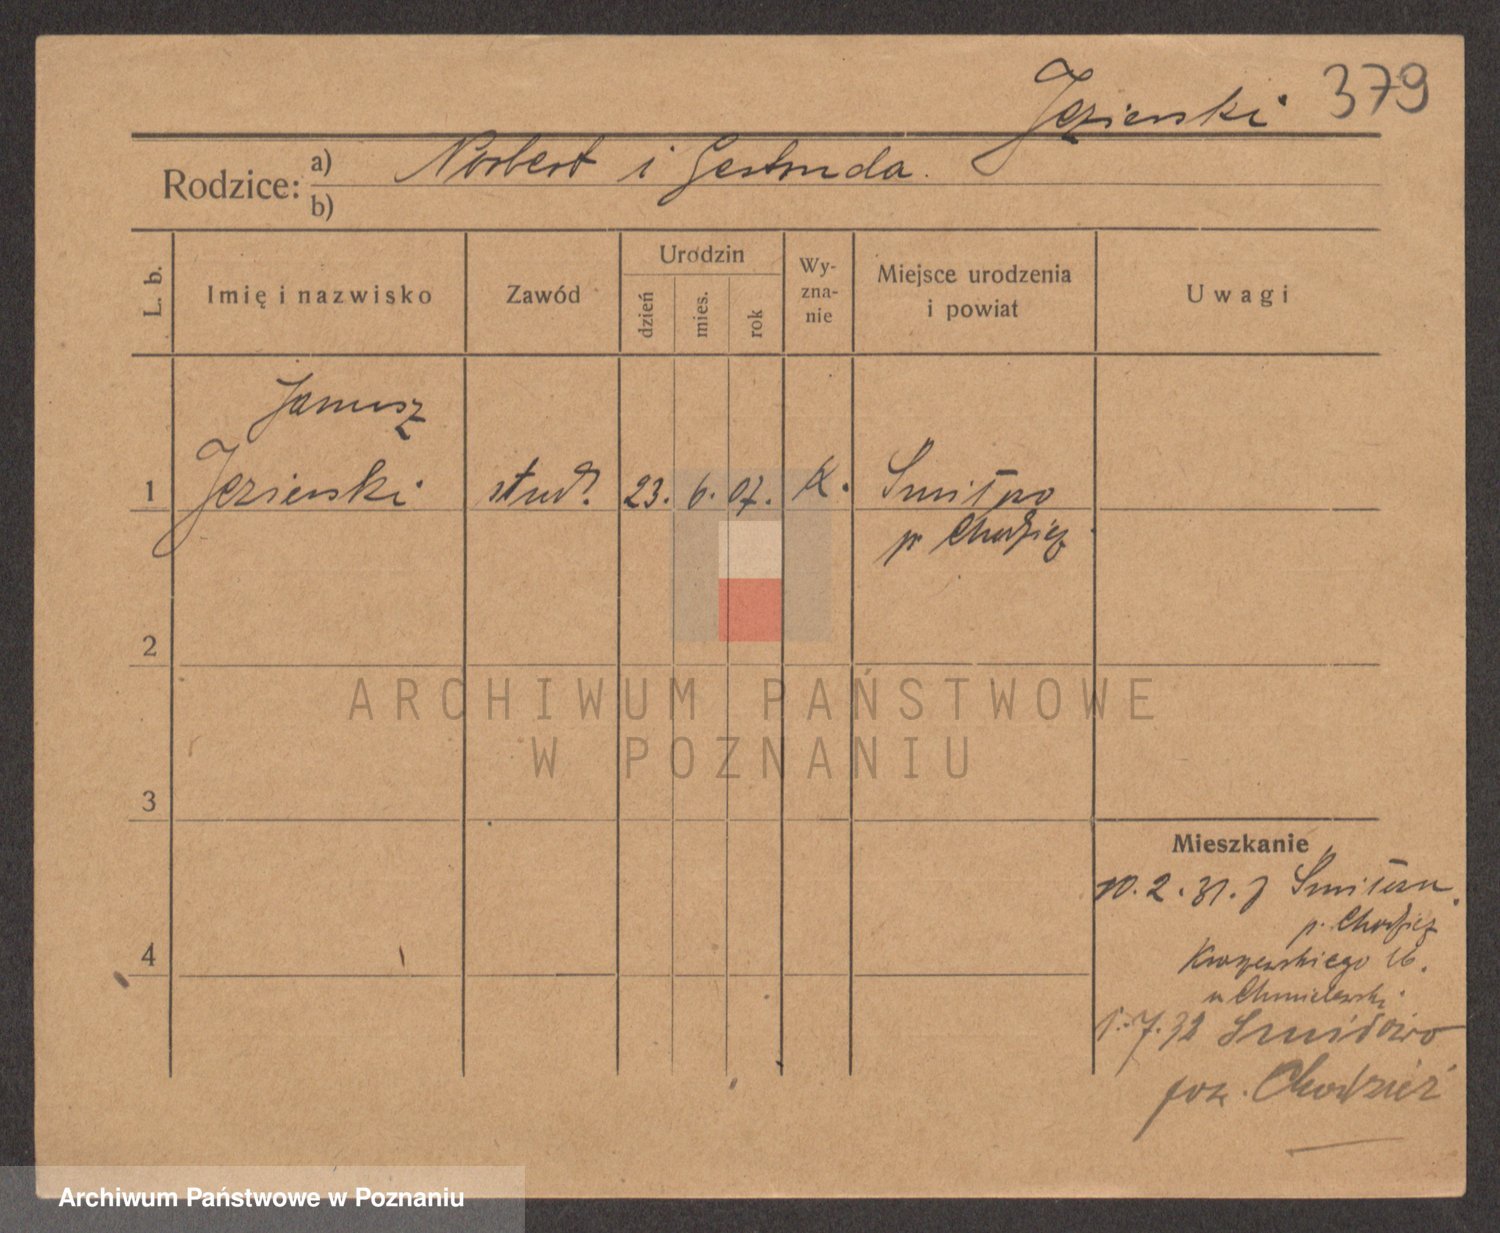 Jezierski 379
Rodzice: a) Norbert i Gertruda.
b)
L. b. Imię i nazwisko Zawód Urodzin Wy-zna-nie Miejsce urodzenia i powiat Uwagi
dzień mies. rok
Janusz
1 Jezierski stud. 23. 6. 07. K.
p. Chodzież
2
ARCHIWUM PAŃSTWOWE
W POZNANIU
3
Mieszkanie
10. 2. 31. z
p. Chodzież
4 Kraszewskiego 16.
u Chmielewski.
1. 7. 32
pow. Chodzież
Archiwum Państwowe w Poznaniu